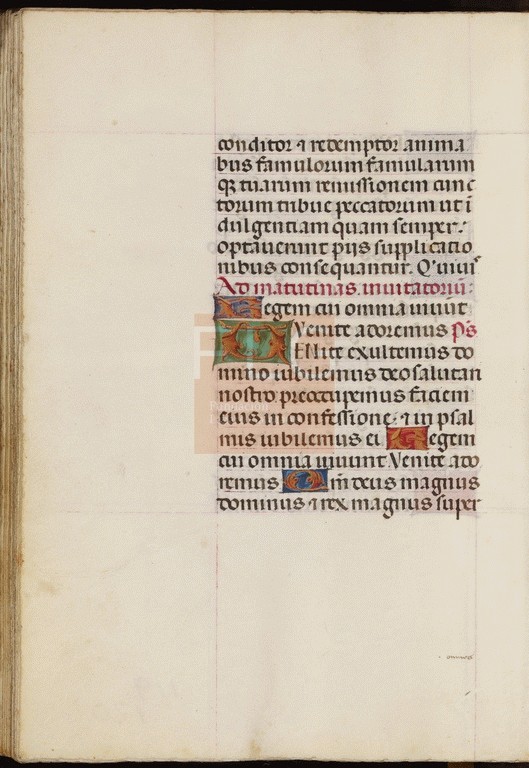 conditor ⁊ redemptor anima
bus famulorum famularum
qꝫ tuarum remissionem cunc
torum tribue peccatorum ut ī
dulgentiam quam semper:
optauerunt piis supplicatio
nibus consequantur. Q'uiuis
Ad matutinas. inuitatoriū:
Regem cui omnia uiuūt
Venite adoremus Ps
VENite exultemus do
mino iubilemus deo salutari
nostro preoccupemus faciem
eius in confessione. ⁊ in psal
mis iubilemus ei Regem
cui omnia uiuunt. Venite ado
remus Qm̄ deus magnus
dominus ⁊ rex magnus super